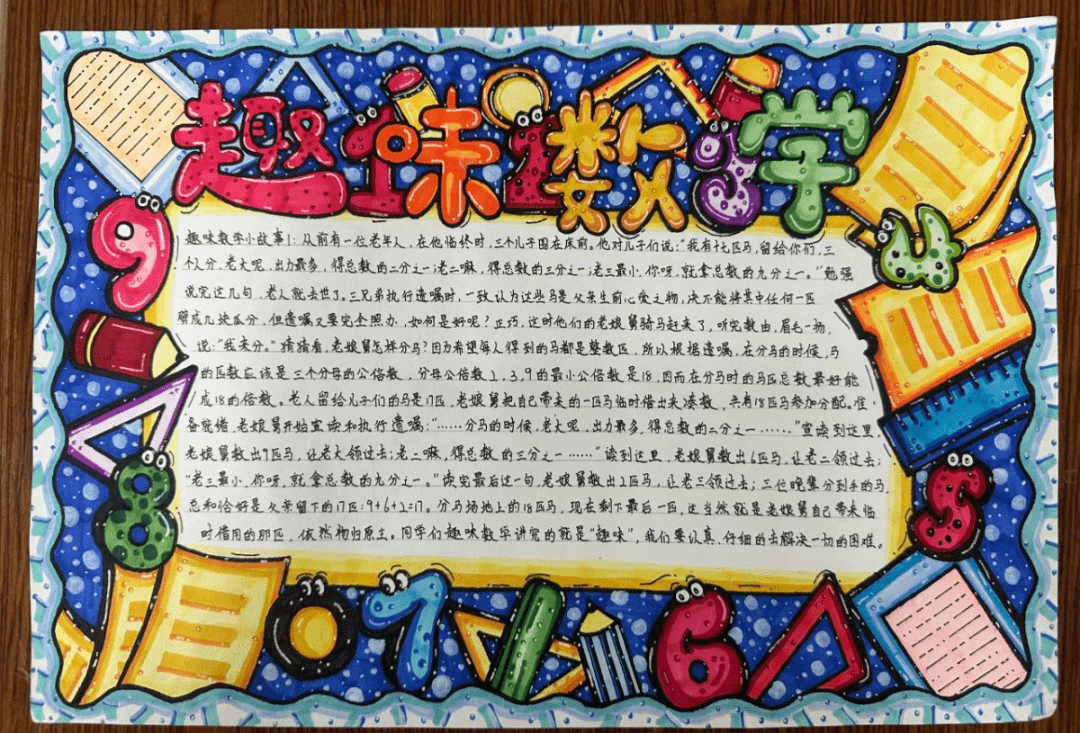 趣味数学
趣味数学小故事1:从前有一位老年人,在他临终时,三个儿子围在床前,他对儿子们说:“我有十七匹马,留给你们,三
个人分,老大呢,出力最多,得总数的二分之一;老二嘛,得总数的三分之一;老三最小,你呀,就拿总数的九分之一。”勉强
说完这几句,老人就去世了。三兄弟执行遗嘱时,一致认为这些马是父亲生前心爱之物,决不能将其中任何一匹
劈成几块瓜分,但遗嘱又要完全照办,如何是好呢?正巧,这时他们的老娘舅骑马赶来了,听完教由,眉毛一扬,
说:“我来分。”猜猜看,老娘舅怎样分马?因为希望每人得到的马都是整数匹,所以根据遗嘱,在分马的时候,马
的匹数应该是三个分母的公倍数,分母公倍数2,3,9的最小公倍数是18,因而在分马时的马匹总数最好能
成18的倍数。老人留给儿子们的马是17匹,老娘舅把自己带来的一匹马临时借出来凑数,共有18匹马参加分配。准
备就绪,老娘舅开始宣读和执行遗嘱:“……分马的时候,老大呢,出力最多,得总数的二分之一……”宣读到这里,
老娘舅数出9匹马,让老大领过去;老二嘛,得总数的三分之一……”读到这里,老娘舅数出6匹马,让老二领过去;
“老三最小,你呀,就拿总数的九分之一。”读完最后这一句,老娘舅数出2匹马,让老三领过去;三位晚辈分到手的马,
总和恰好是父亲留下的17匹:9+6+2=17。分马场地上的18匹马,现在剩下最后一匹,这当然就是老娘舅自己带来临
时借用的那匹,依然物归原主。同学们趣味数学讲究的就是“趣味”,我们要认真、仔细的去解决一切的困难。
9
1
2
3
4
8
5
0
7
1
6